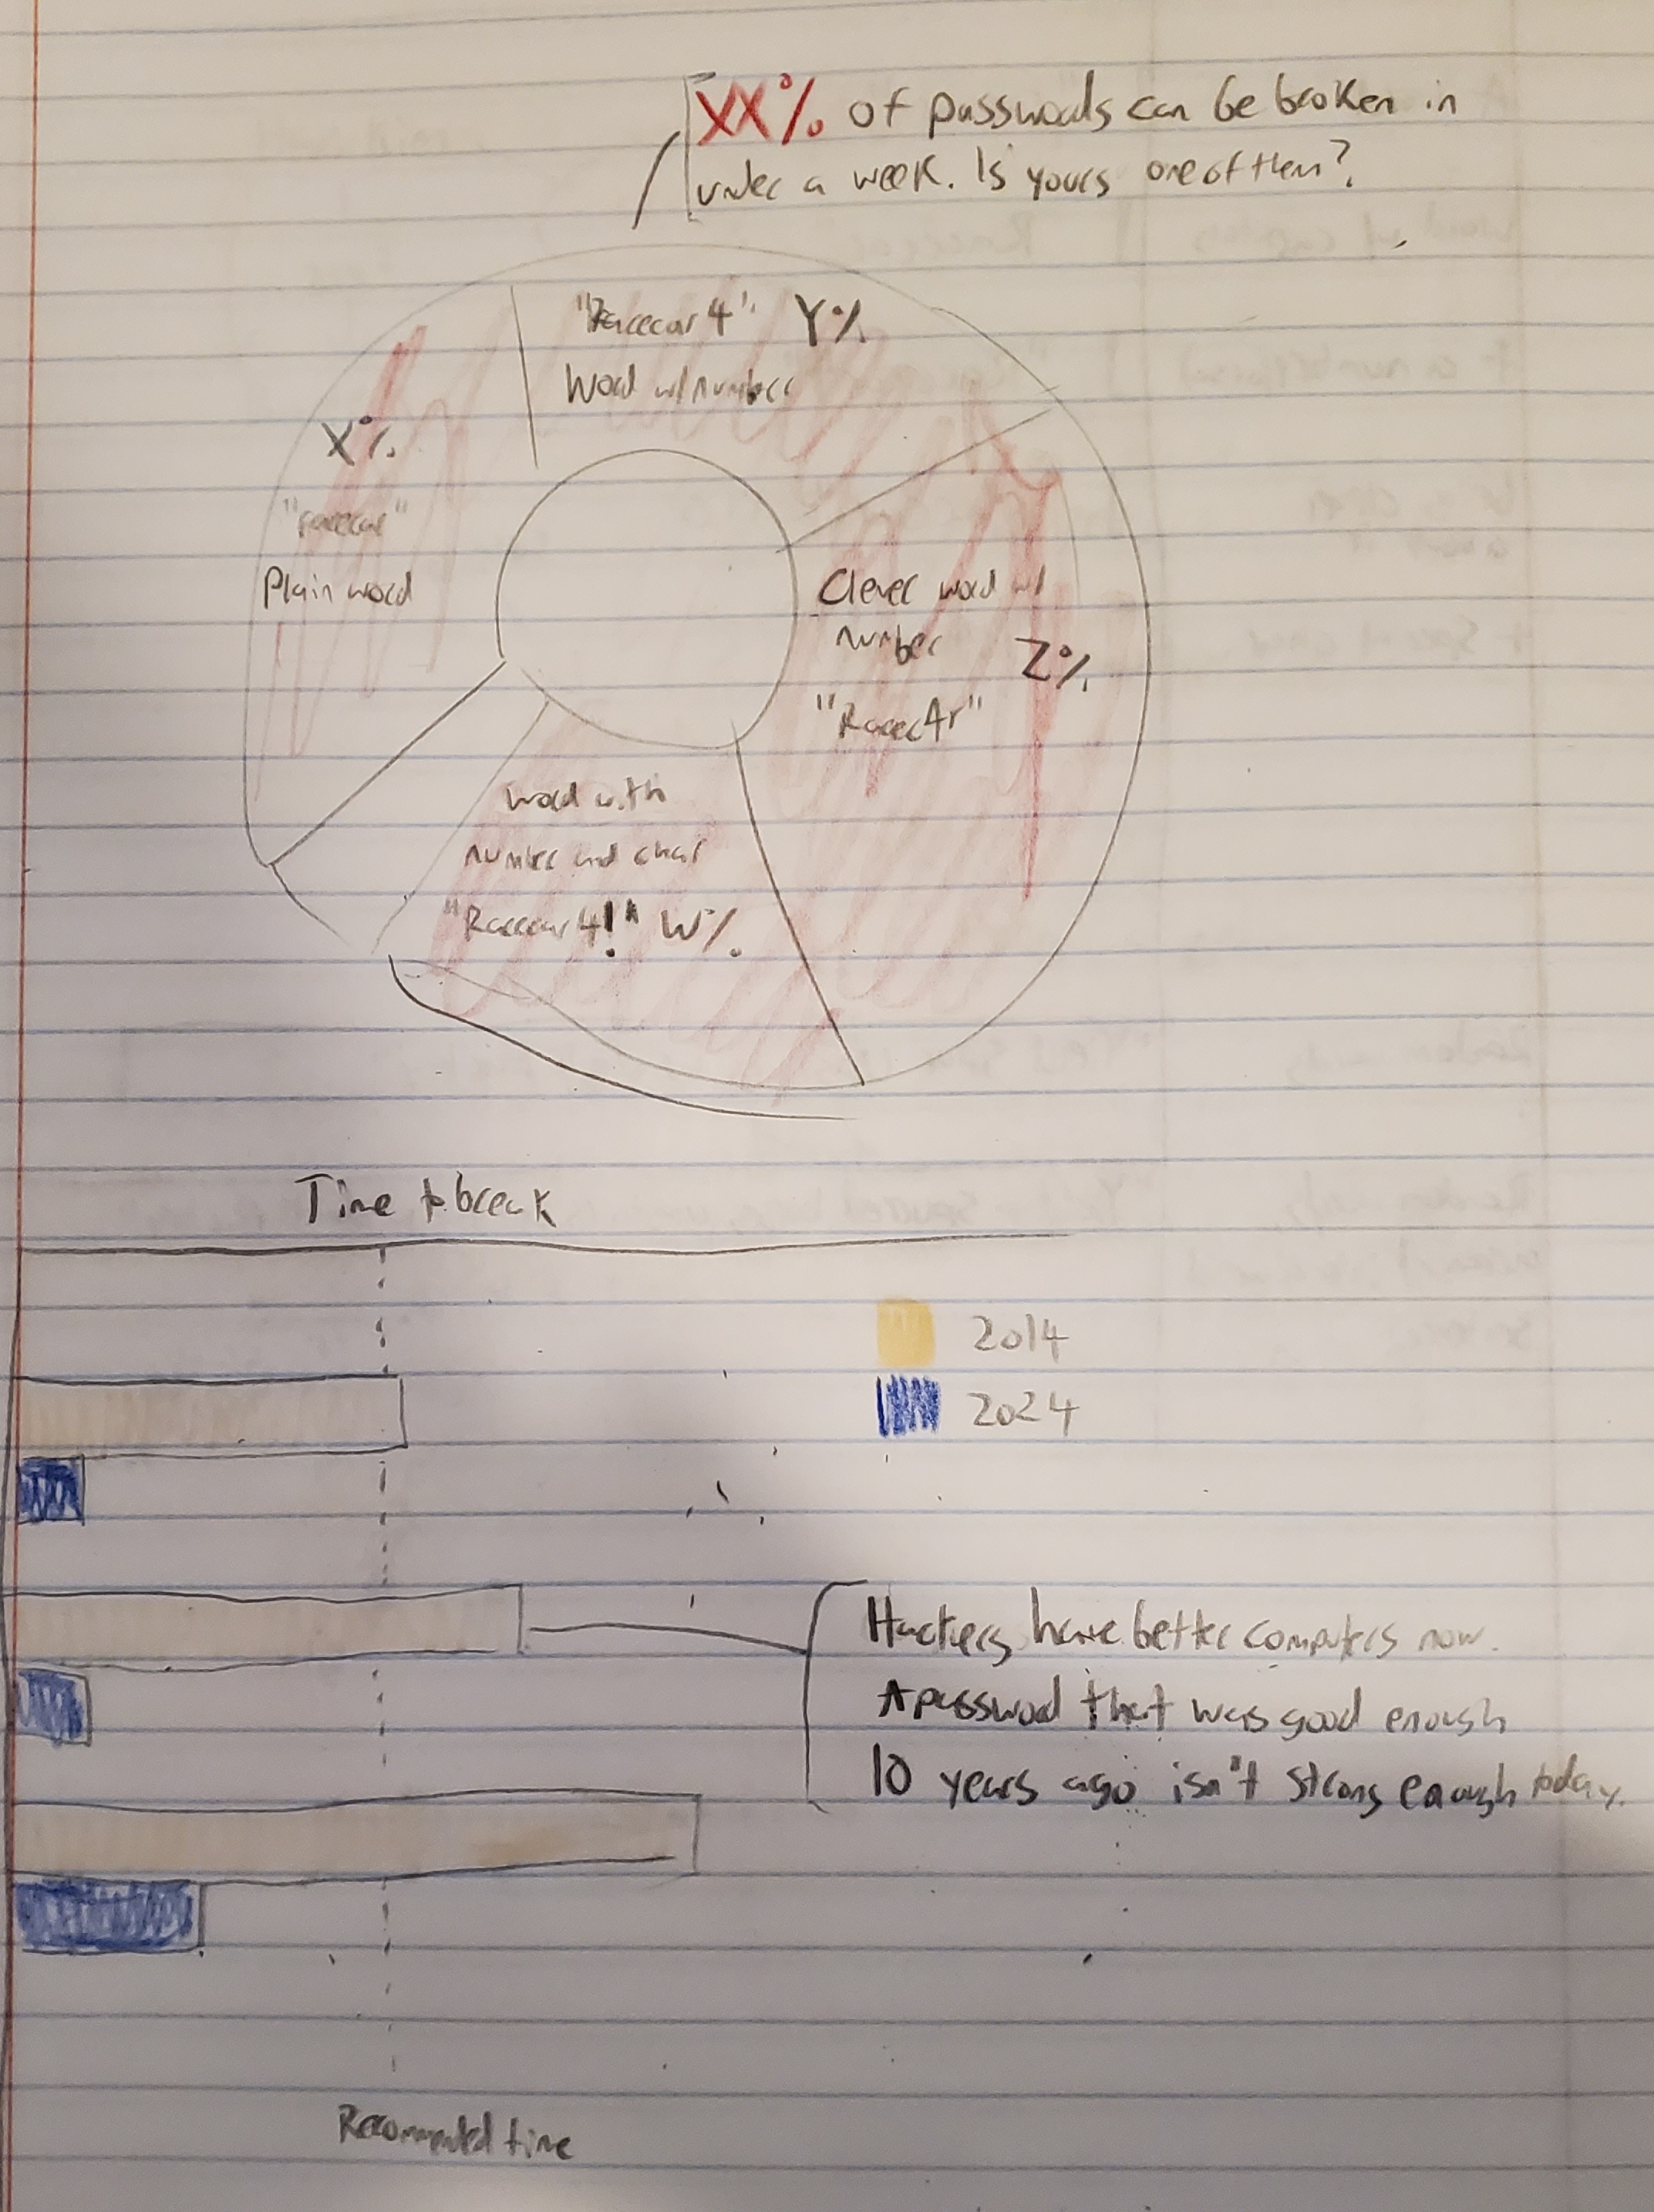 XX% of passwords can be broken in
under a week. Is yours one of them?
"Racecar4" Y%
Word w/number
X%
"racecar"
Plain word
Clever word w/
number
Z%
"Racec4r"
word with
number and char
"Racecar4!" W%
Time to break
2014
2024
Hackers have better computers now.
A password that was good enough
10 years ago isn't strong enough today.
Recommended time